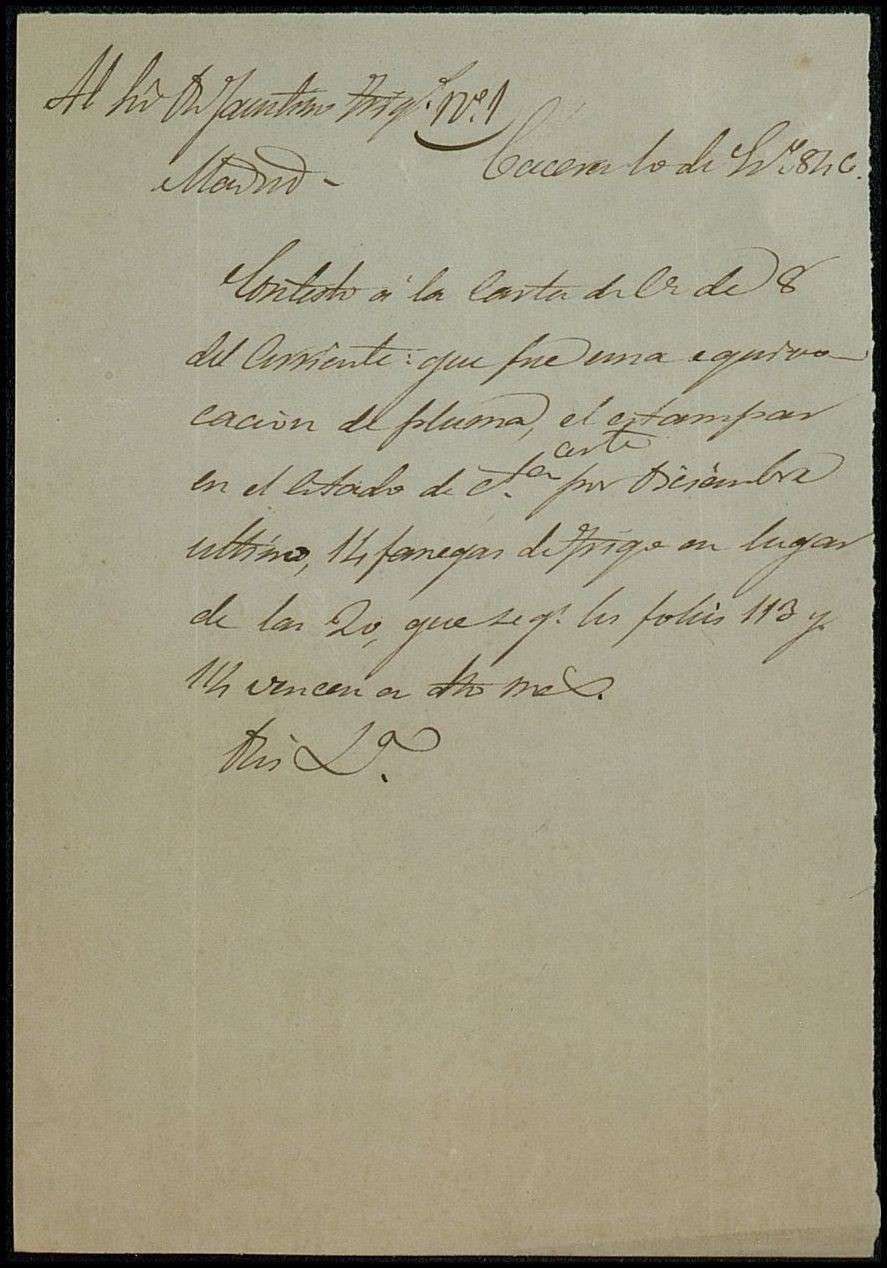 Al Sr D. Faustino Trigo. Nº. 1
Madrid -
Caceres 10 de
Contesto á la Carta de V. de 8
del Corriente: que fue una equivo
cacion de pluma, el estampar
en el Estado de por Diciembre
ultimo, 14 fanegas de trigo en lugar
de las 20, que segn. los folios 113 y
114 vencen en dho mes.
Dios